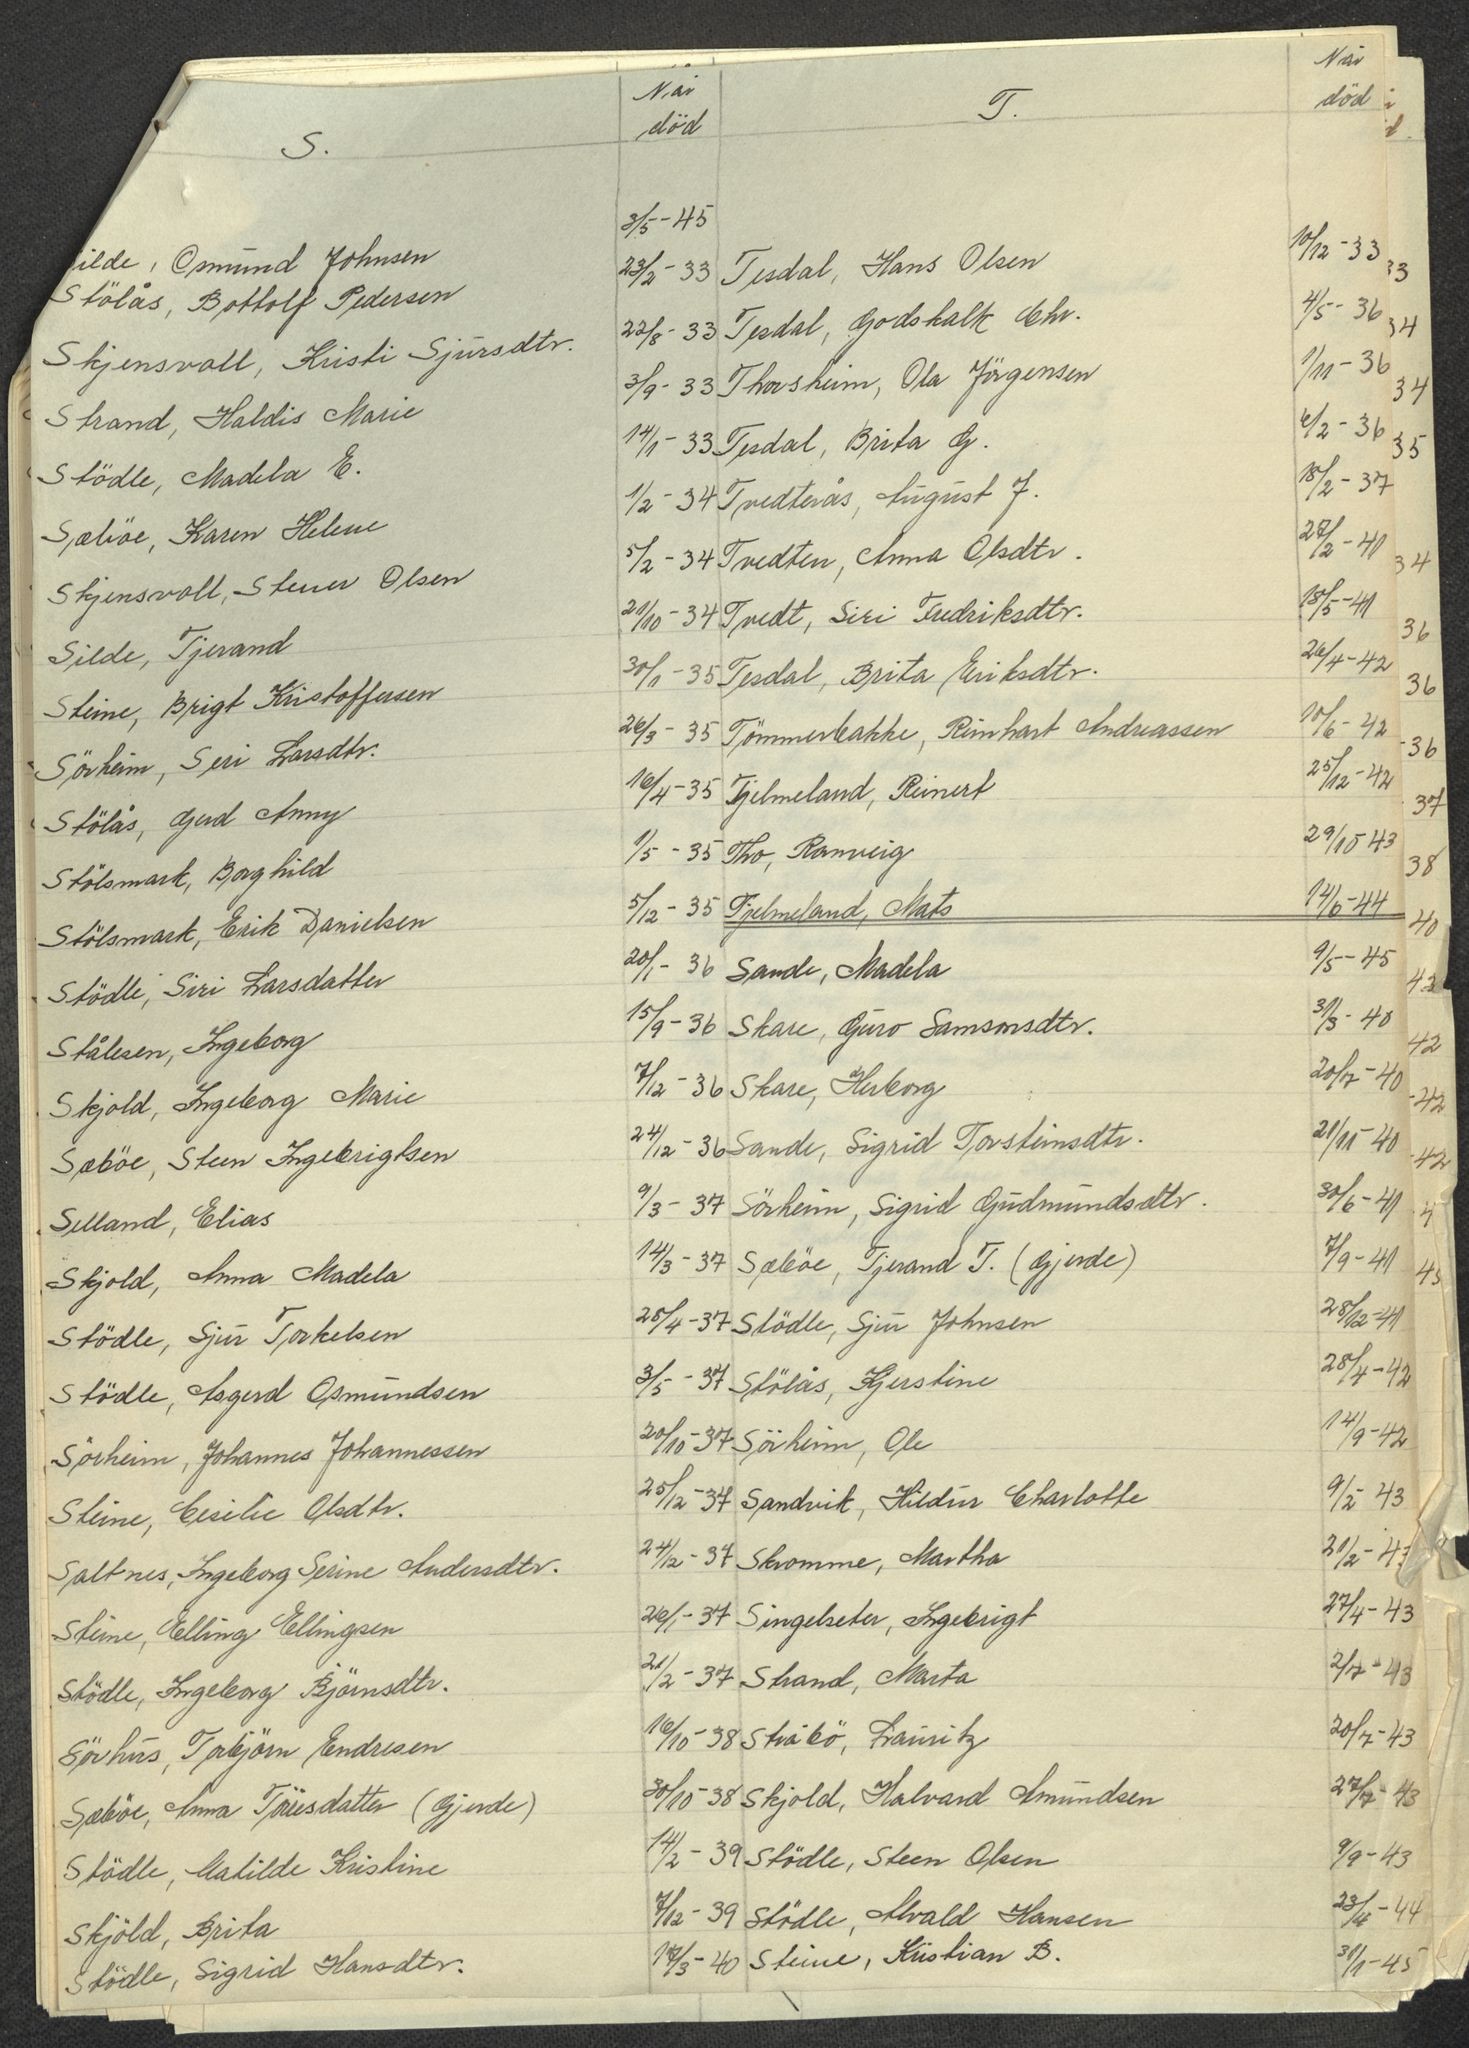 S. När död T. När död
ilde, Osmund Johnsen 3/5-45
Stölås, Bottolf Pedersen 23/2-33 Tesdal, Hans Olsen 10/12-33
Skjensvoll, Kristi Sjursdtr. 22/8-33 Tesdal, Godskalk Chr. 4/5-36
Strand, Haldis Marie 3/9-33 Thorsheim, Ola Jörgensen 1/11-36
Stödle, Madela E. 14/1-33 Tesdal, Brita G. 6/2-36
Sæböe, Karen Helene 1/2-34 Tvedterås, August J. 18/2-37
Skjensvoll, Stener Olsen 5/2-34 Tvedten, Anna Olsdtr. 27/2-41
Silde, Tjerand 21/10-34 Tvedt, Siri Fredriksdtr. 18/5-41
Steine, Brigt Kristoffersen 30/1-35 Tesdal, Brita Eriksdtr. 26/4-42
Sörheim, Seri Larsdtr. 26/3-35 Tömmerbakke, Reinhart Andreassen 10/6-42
Stölås, Gerd Anny 16/4-35 Tjelmeland, Reinert 25/12-42
Stölsmark, Borghild 1/5-35 Tho, Ranveig 29/10 43
Stölsmark, Erik Danielsen 5/12-35 Tjelmeland, Mats 14/6-44
Stödle, Siri Larsdatter 20/1-36 Sande, Madela 9/5-45
Stålesen, Ingeborg 15/9-36 Skare, Guro Samsonsdtr. 31/3-40
Skjold, Ingeborg Marie 7/12-36 Skare, Herborg 20/7-40
Sæböe, Steen Ingebrigtsen 24/12-36 Sande, Sigrid Torsteinsdtr. 21/11-40
Selland, Elias 9/3-37 Sörheim, Sigrid Gudmundsdtr. 30/6-41
Skjold, Anna Madela 14/3-37 Sæböe, Tjerand T. (Gjerde) 7/9-41
Stödle, Sjur Torkelsen 25/4-37 Stödle, Sjur Johnsen 28/12-41
Stödle, Asgerd Osmundsen 3/5-37 Stölås, Kjerstine 28/4-42
Sörheim, Johannes Johannessen 20/10-37 Sörheim, Ole 14/9-42
Steine, Cesilie Olsdtr. 25/12-37 Sandvik, Hildur Charlotte 9/2-43
Saltnes, Ingeborg Serine Andersdtr. 24/12-37 Skromme, Martha 21/2-43
Steine, Elling Ellingsen 26/1-37 Singelseter, Ingebrigt 27/4-43
Stödle, Ingeborg Björnsdtr. 21/2-37 Strand, Marta 2/7-43
Sörhus, Torbjörn Endresen 16/10-38 Stråbö, Lauritz 20/7-43
Sæböe, Anna Töresdatter (Gjerde) 30/10-38 Skjold, Halvard Amundsen 27/7-43
Stödle, Matilde Kristine 14/2-39 Stödle, Steen Olsen 9/9-43
Skjöld, Brita 7/12-39 Stödle, Alvald Hansen 23/4-44
Stödle, Sigrid Hansdtr. 17/3-40 Steine, Kristian B. 31/1-45